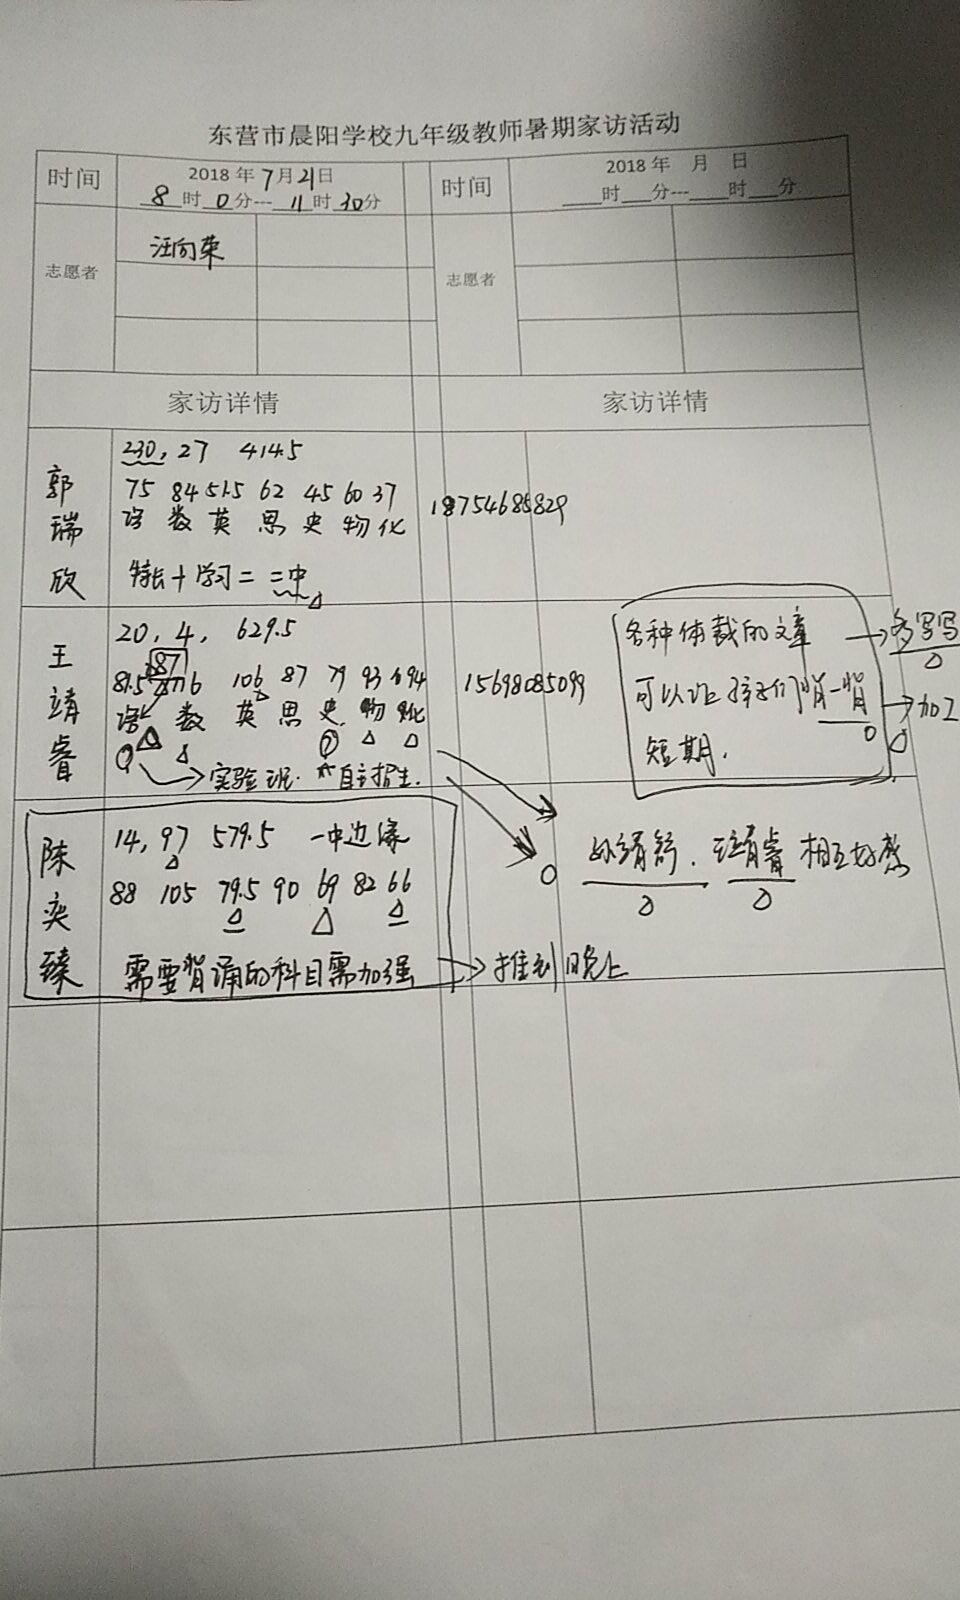 东营市晨阳学校九年级教师暑期家访活动
时间
2018 年 7 月 21 日
8 时 0 分---11 时 30 分
时间
2018 年 月 日
时 分--- 时 分
志愿者
汪向荣
志愿者
家访详情
家访详情
郭瑞欣
230, 27 414.5
75 84 51.5 62 45 60 37
语 数 英 思 史 物 化
18754685829
特长+学习=二中
王靖睿
20, 4, 629.5
87
81.5 106 87 79 93 94
语 数 英 思 史 物 化
15698085099
实验班 自主招生.
各种体裁的文章
多写写
可以让孩子们背一背
加工
短期.
陈奕臻
14, 97 579.5 一中边缘
88 105 79.5 90 69 82 66
需要背诵的科目需加强
推到晚上
王靖睿 相互